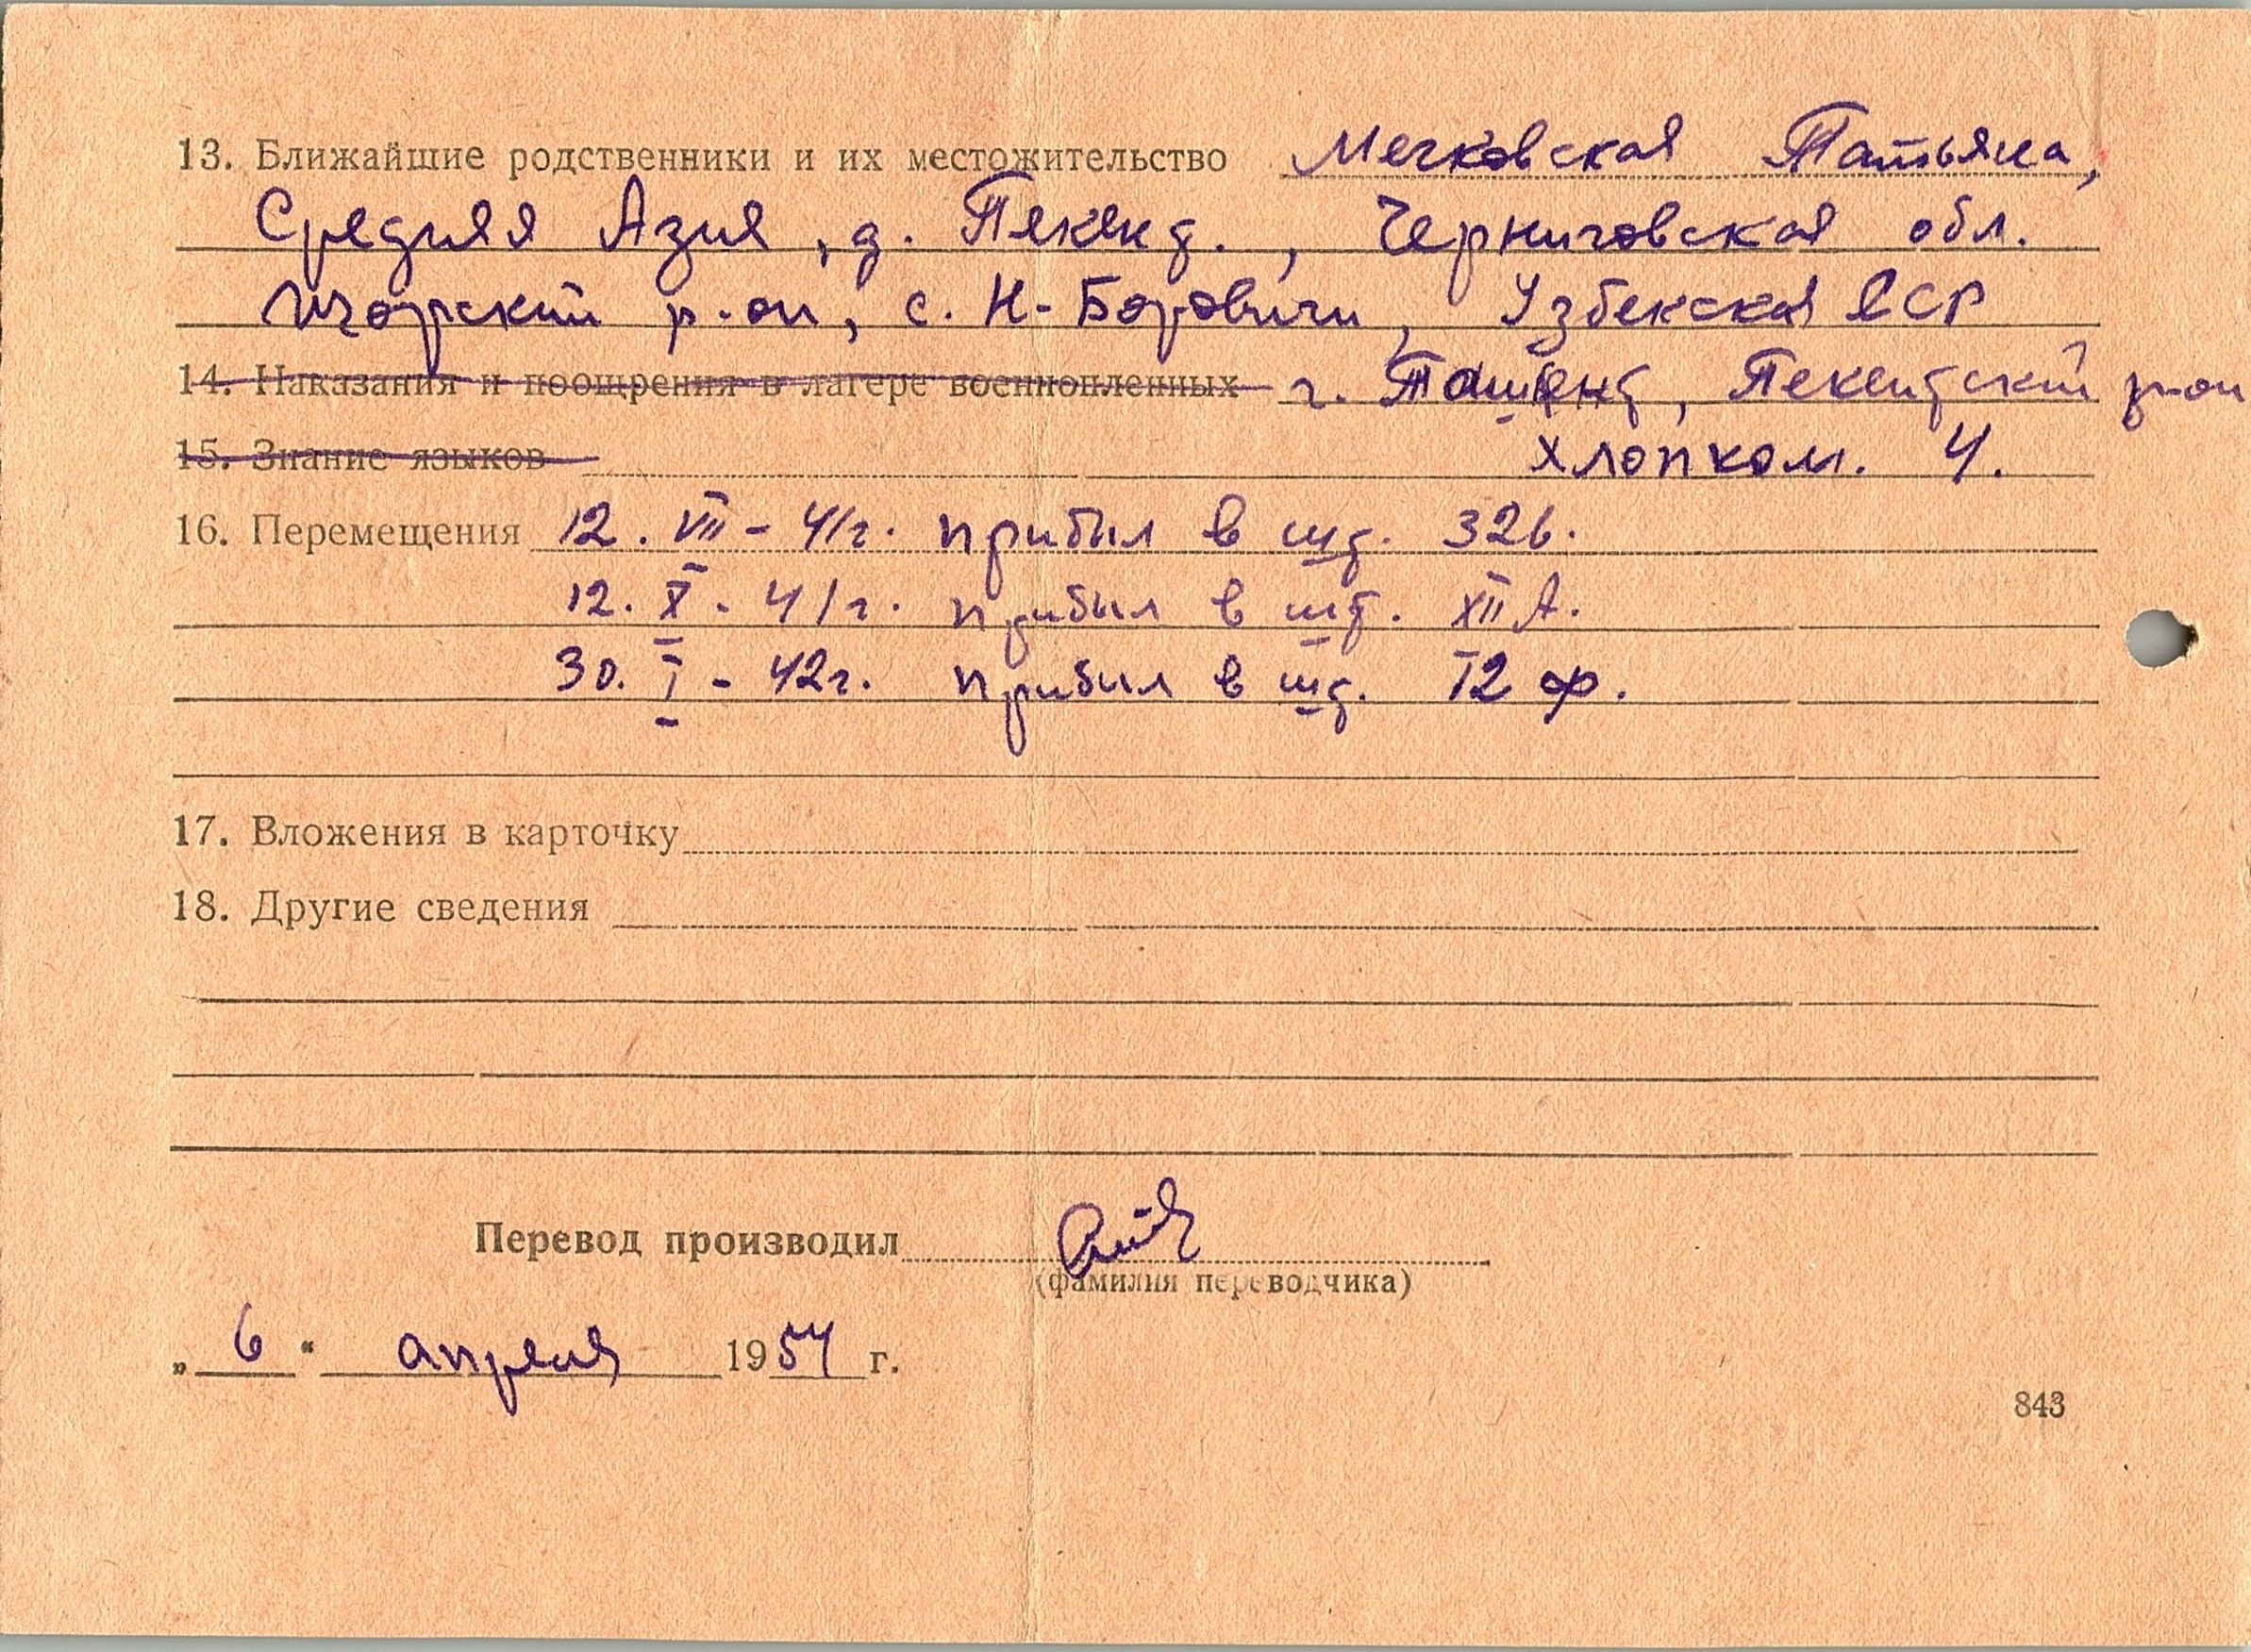 13. Ближайшие родственники и их местожительство Мечковская Татьяна,
Средняя Азия, д. Пекенд., Черниговская обл.
Ичорский р-он, с. Н-Боровичи, Узбекская ССР
14. Наказания и поощрения в лагере военнопленных г. Ташкент, Пекентский р-он
15. Знание языков хлопком. 4.
16. Перемещения 12. VII - 41г. прибыл в шт. 326.
12. X - 41г. прибыл в шт. XII А.
30. I - 42г. прибыл в шт. 12 ф.
17. Вложения в карточку
18. Другие сведения
Перевод производил
(фамилия переводчика)
„ 6 “ апреля 1954 г.
843